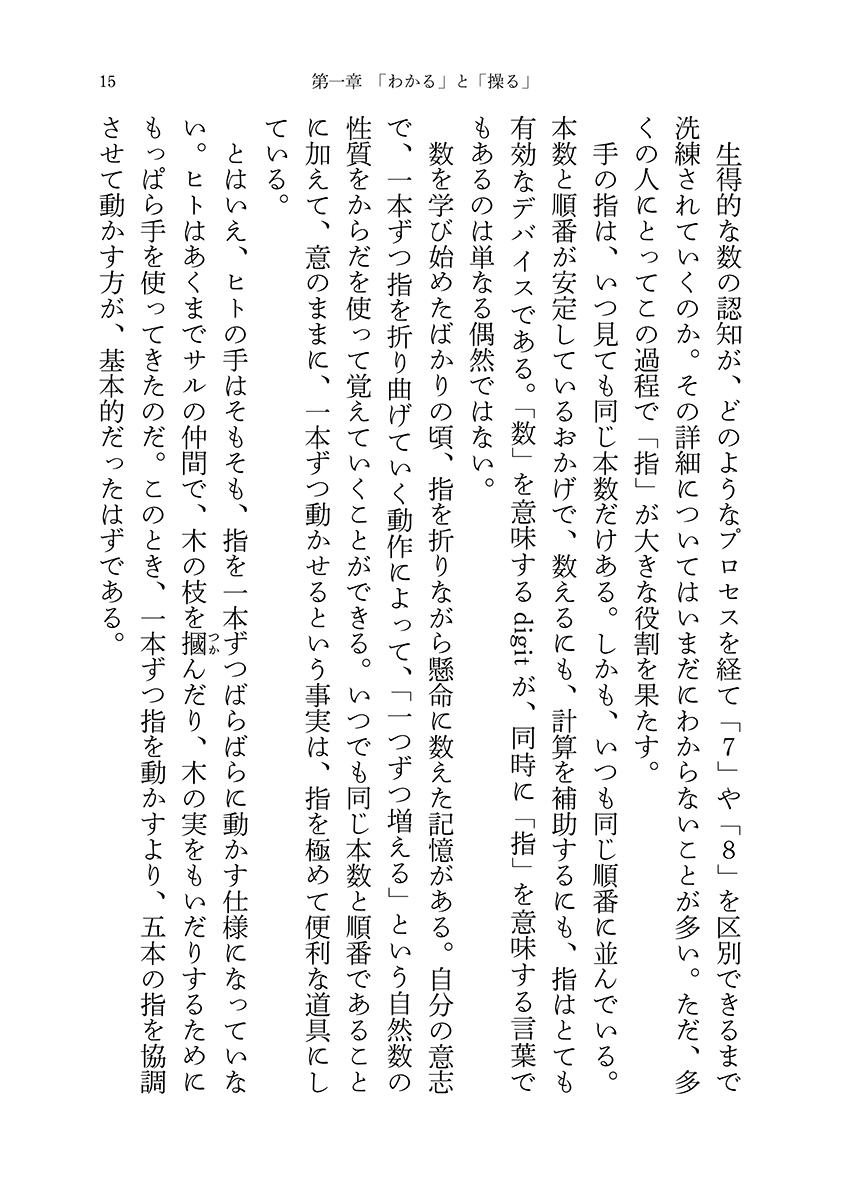 15
第一章 「わかる」と「操る」
生得的な数の認知が、どのようなプロセスを経て「7」や「8」を区別できるまで
洗練されていくのか。その詳細についてはいまだにわからないことが多い。ただ、多
くの人にとってこの過程で「指」が大きな役割を果たす。
手の指は、いつ見ても同じ本数だけある。しかも、いつも同じ順番に並んでいる。
本数と順番が安定しているおかげで、数えるにも、計算を補助するにも、指はとても
有効なデバイスである。「数」を意味する digit が、同時に「指」を意味する言葉で
もあるのは単なる偶然ではない。
数を学び始めたばかりの頃、指を折りながら懸命に数えた記憶がある。自分の意志
で、一本ずつ指を折り曲げていく動作によって、「一つずつ増える」という自然数の
性質をからだを使って覚えていくことができる。いつでも同じ本数と順番であること
に加えて、意のままに、一本ずつ動かせるという事実は、指を極めて便利な道具にし
ている。
とはいえ、ヒトの手はそもそも、指を一本ずつばらばらに動かす仕様になっていな
い。ヒトはあくまでサルの仲間で、木の枝を摑んだり、木の実をもいだりするために
つか
もっぱら手を使ってきたのだ。このとき、一本ずつ指を動かすより、五本の指を協調
させて動かす方が、基本的だったはずである。